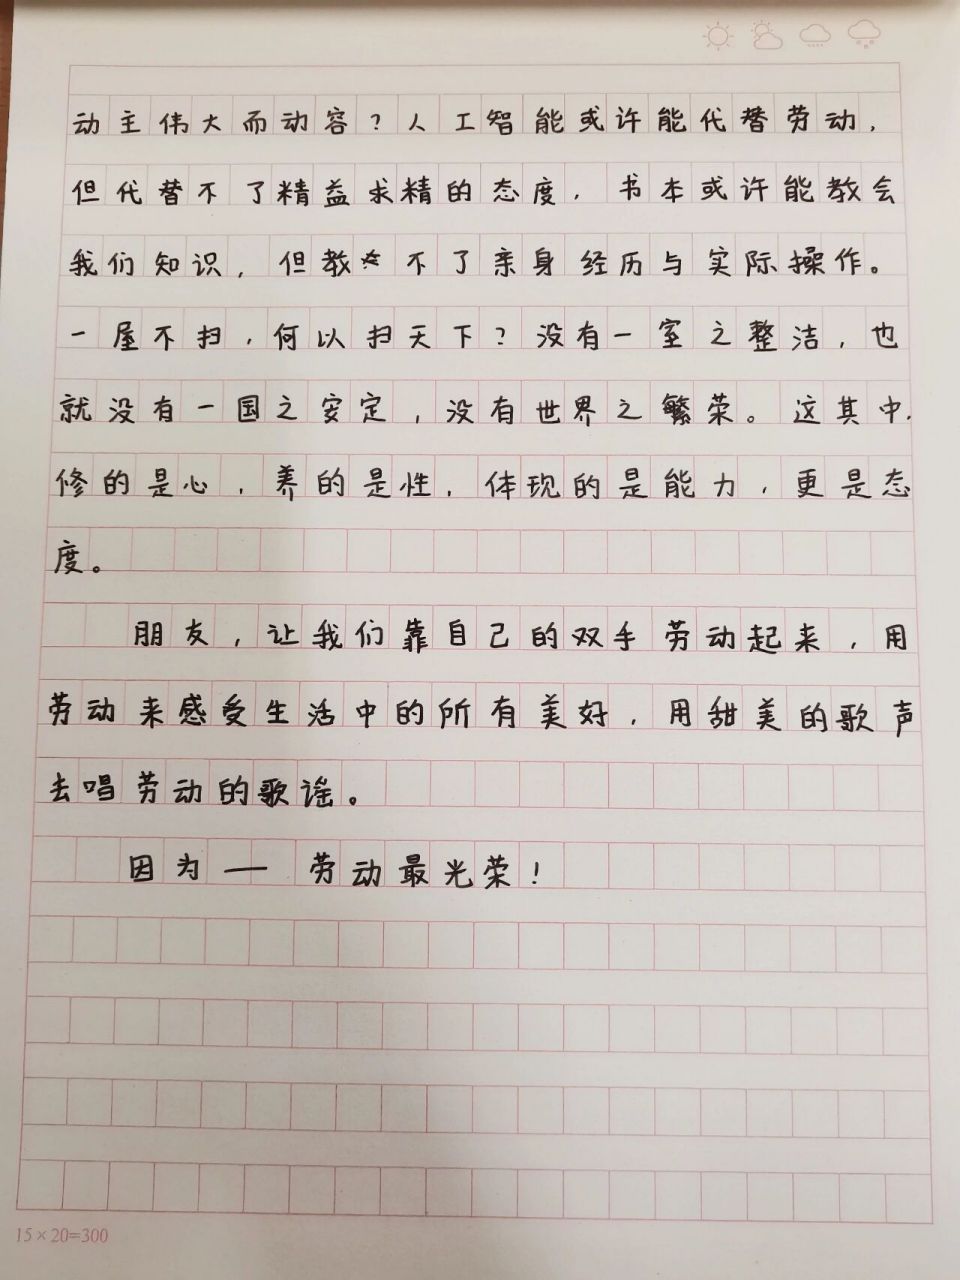 动主伟大而动容?人工智能或许能代替劳动,
但代替不了精益求精的态度,书本或许能教会
我们知识,但教不了亲身经历与实际操作。
一屋不扫,何以扫天下?没有一室之整洁,也
就没有一国之安定,没有世界之繁荣。这其中,
修的是心,养的是性,体现的是能力,更是态
度。
朋友,让我们靠自己的双手劳动起来,用
劳动来感受生活中的所有美好,用甜美的歌声
去唱劳动的歌谣。
因为——劳动最光荣!
15×20=300